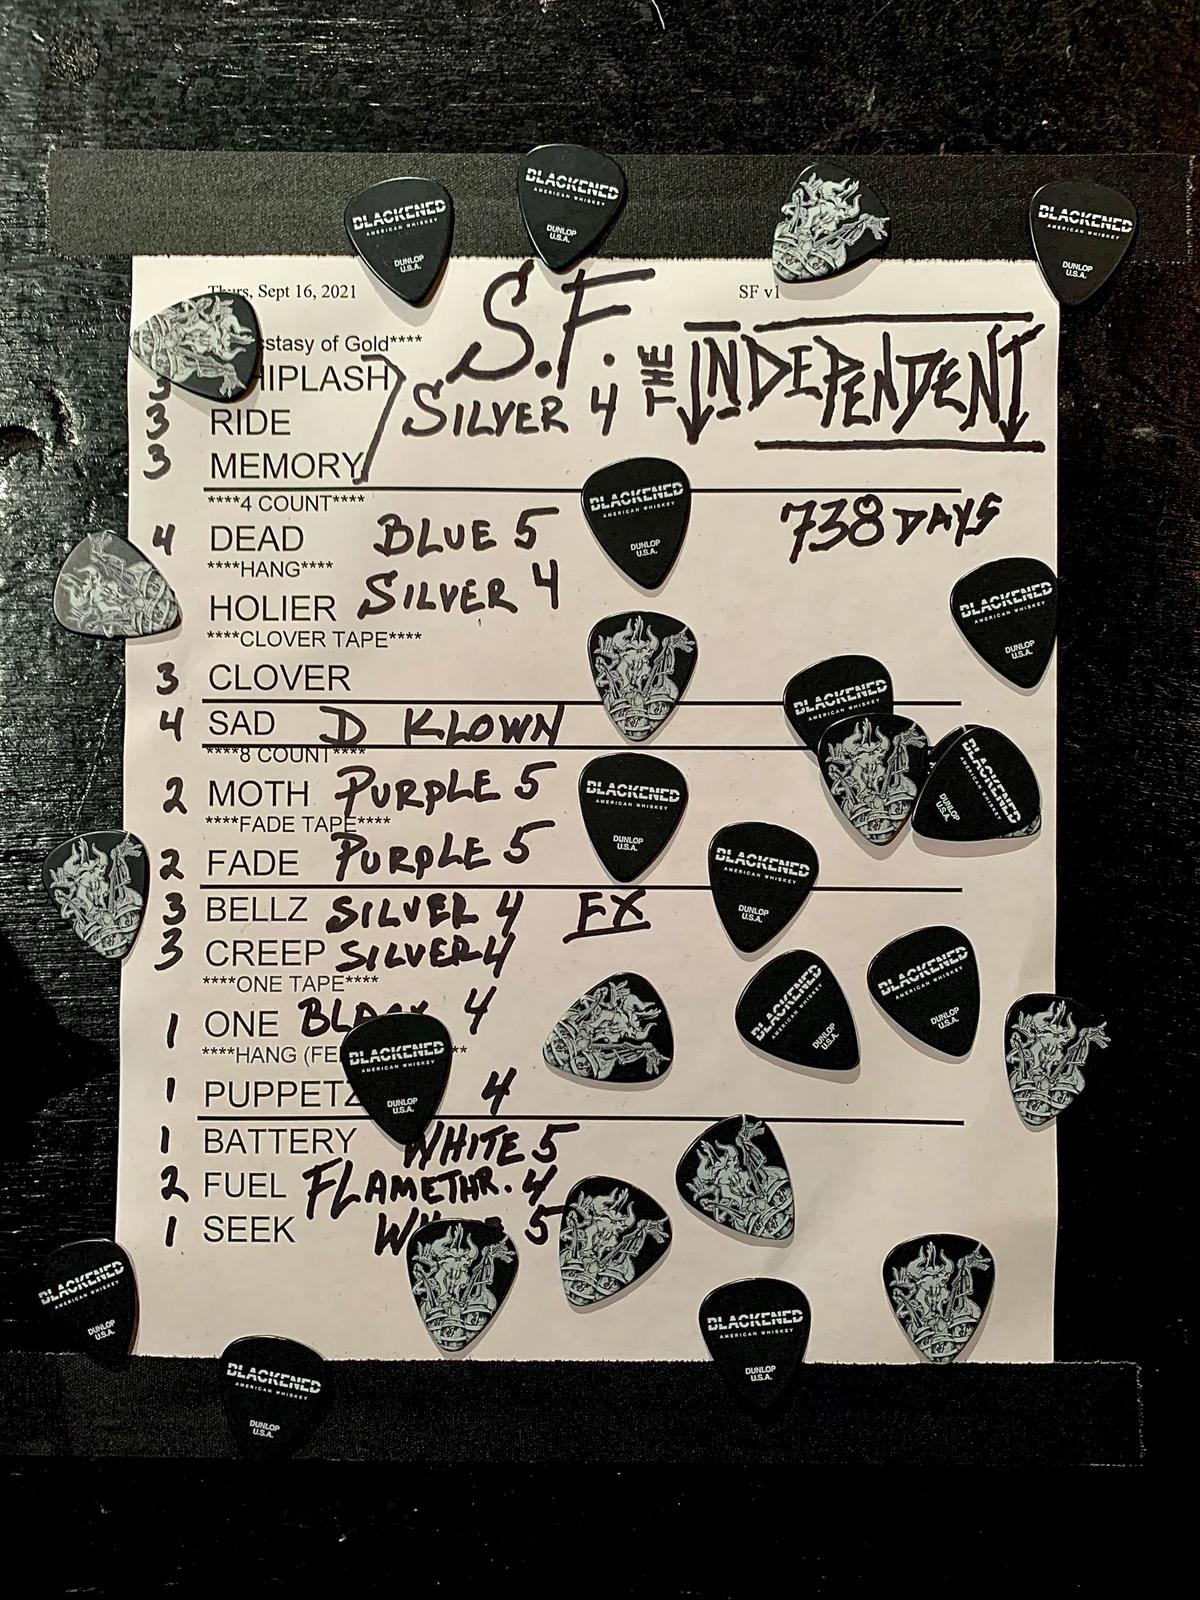 BLACKENED
AMERICAN WHISKEY
DUNLOP
U.S.A.
BLACKENED
AMERICAN WHISKEY
DUNLOP
U.S.A.
BLACKENED
AMERICAN WHISKEY
DUNLOP
U.S.A.
Sept 16, 2021 SF v1
S.F.
THE INDEPENDENT
of Gold****
3
3 RIDE SILVER 4
3 MEMORY
****4 COUNT****
738 DAYS
4 DEAD BLUE 5
****HANG****
HOLIER SILVER 4
****CLOVER TAPE****
3 CLOVER
4 SAD D KLOWN
****8 COUNT****
2 MOTH PURPLE 5
****FADE TAPE****
2 FADE PURPLE 5
3 BELLZ SILVER 4 FX
3 CREEP SILVER 4
****ONE TAPE****
1 ONE 4
****HANG
1 PUPPETZ 4
1 BATTERY WHITE 5
2 FUEL FLAMETHR. 4
1 SEEK 5
BLACKENED
AMERICAN WHISKEY
DUNLOP
U.S.A.
BLACKENED
AMERICAN WHISKEY
DUNLOP
U.S.A.
BLACKENED
BLACKENED
AMERICAN WHISKEY
DUNLOP
U.S.A.
BLACKENED
AMERICAN WHISKEY
DUNLOP
U.S.A.
BLACKENED
AMERICAN WHISKEY
DUNLOP
U.S.A.
BLACKENED
AMERICAN WHISKEY
DUNLOP
U.S.A.
BLACKENED
AMERICAN WHISKEY
DUNLOP
U.S.A.
BLACKENED
AMERICAN WHISKEY
DUNLOP
U.S.A.
BLACKENED
AMERICAN WHISKEY
DUNLOP
U.S.A.
BLACKENED
AMERICAN WHISKEY
DUNLOP
U.S.A.
BLACKENED
AMERICAN WHISKEY
DUNLOP
U.S.A.